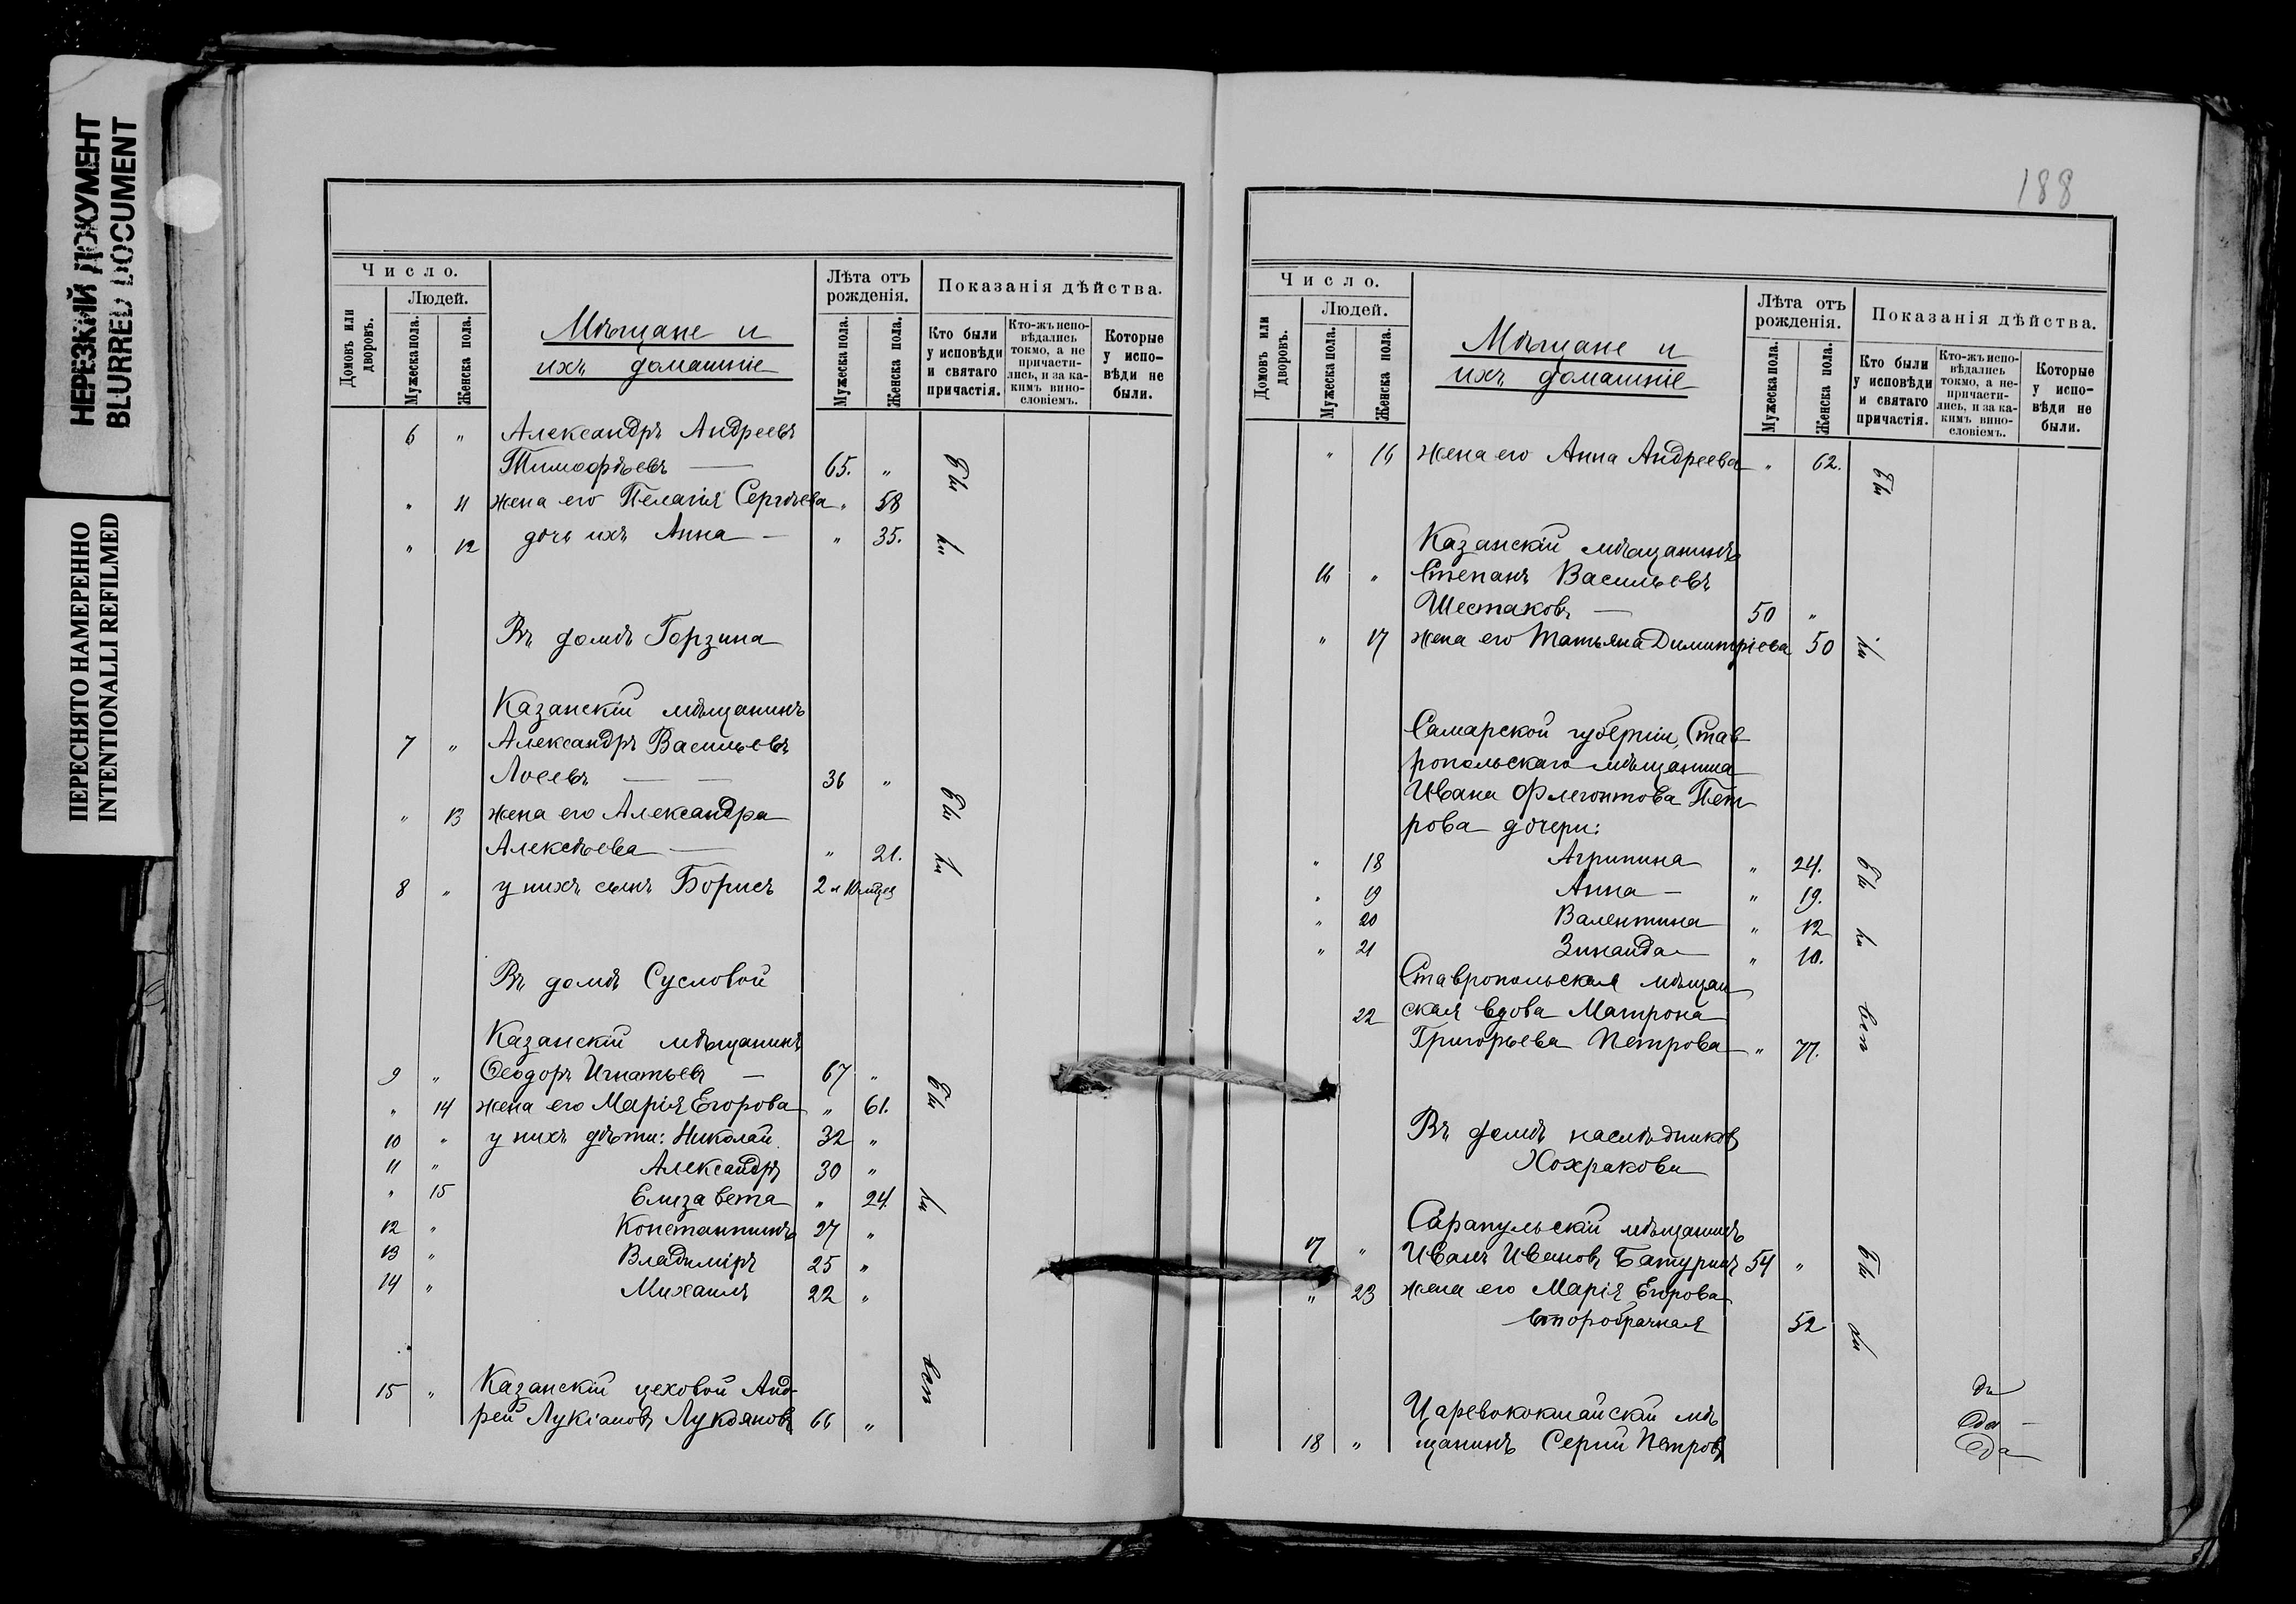 НЕРЕЗКИЙ ДОКУМЕНТ
BLURRED DOCUMENT
ПЕРЕСНЯТО НАМЕРЕННО
INTENTIONALLI REFILMED
Число.
Людей.
Домовъ или дворовъ.
Мужеска пола.
Женска пола.
Мѣщане и
ихъ домашніе
Лѣта отъ рожденія.
Мужеска пола.
Женска пола.
Показанія дѣйства.
Кто были у исповѣди и святаго причастія.
Кто-жъ исповѣдались токмо, а не причастились, и за какимъ винословіемъ.
Которые у исповѣди не были.
6 " Александръ Андреевъ
Тимофѣевъ — 65. "
" 11 жена его Пелагія Сергѣева " 58
" 12 дочь ихъ Анна — " 35.
Въ домѣ Горзина
Казанскій мѣщанинъ
7 " Александръ Васильевъ
Лосевъ — — 36 "
" 13 жена его Александра
Алексѣева — " 21.
8 " у нихъ сынъ Борисъ 2 и 10 мцев
Въ домѣ Сусловой
Казанскій мѣщанинъ
9 " Ѳеодоръ Игнатьевъ — 67 "
" 14 жена его Марія Егорова " 61.
10 " у нихъ дѣти: Николай 32 "
11 " Александръ 30 "
" 15 Елизавета " 24.
12 " Константинъ 27 "
13 " Владиміръ 25 "
14 " Михаилъ 22 "
15 " Казанскій цеховой Анд-
рей Лукіановъ Лукояновъ 66 "
188
Число.
Людей.
Домовъ или дворовъ.
Мужеска пола.
Женска пола.
Мѣщане и
ихъ домашніе
Лѣта отъ рожденія.
Мужеска пола.
Женска пола.
Показанія дѣйства.
Кто были у исповѣди и святаго причастія.
Кто-жъ исповѣдались токмо, а не-причастились, и за какимъ винословіемъ.
Которые у исповѣди не были.
" 16 жена его Анна Андреева " 62.
Казанскій мѣщанинъ
16 " Степанъ Васильевъ
Шестаковъ — 50 "
" 17 жена его Татьяна Димитріева 50
Самарской губерніи, Став
ропольскаго мѣщанина
Ивана Флегонтова Пет
рова дочери:
" 18 Агрипина " 24.
" 19 Анна — " 19.
" 20 Валентина " 12
" 21 Зинаида " 10.
Ставропольская мѣщан
22 ская вдова Матрона
Григорьева Петрова " 77.
Въ домѣ наслѣдниковъ
Хохрякова
Сарапульскій мѣщанинъ
17 " Иванъ Ивановъ Батуринъ 54 "
" 23 жена его Марія Егорова
второбрачная 52
Царевококшайскій мѣ
18 " щанинъ Сергій Петровъ